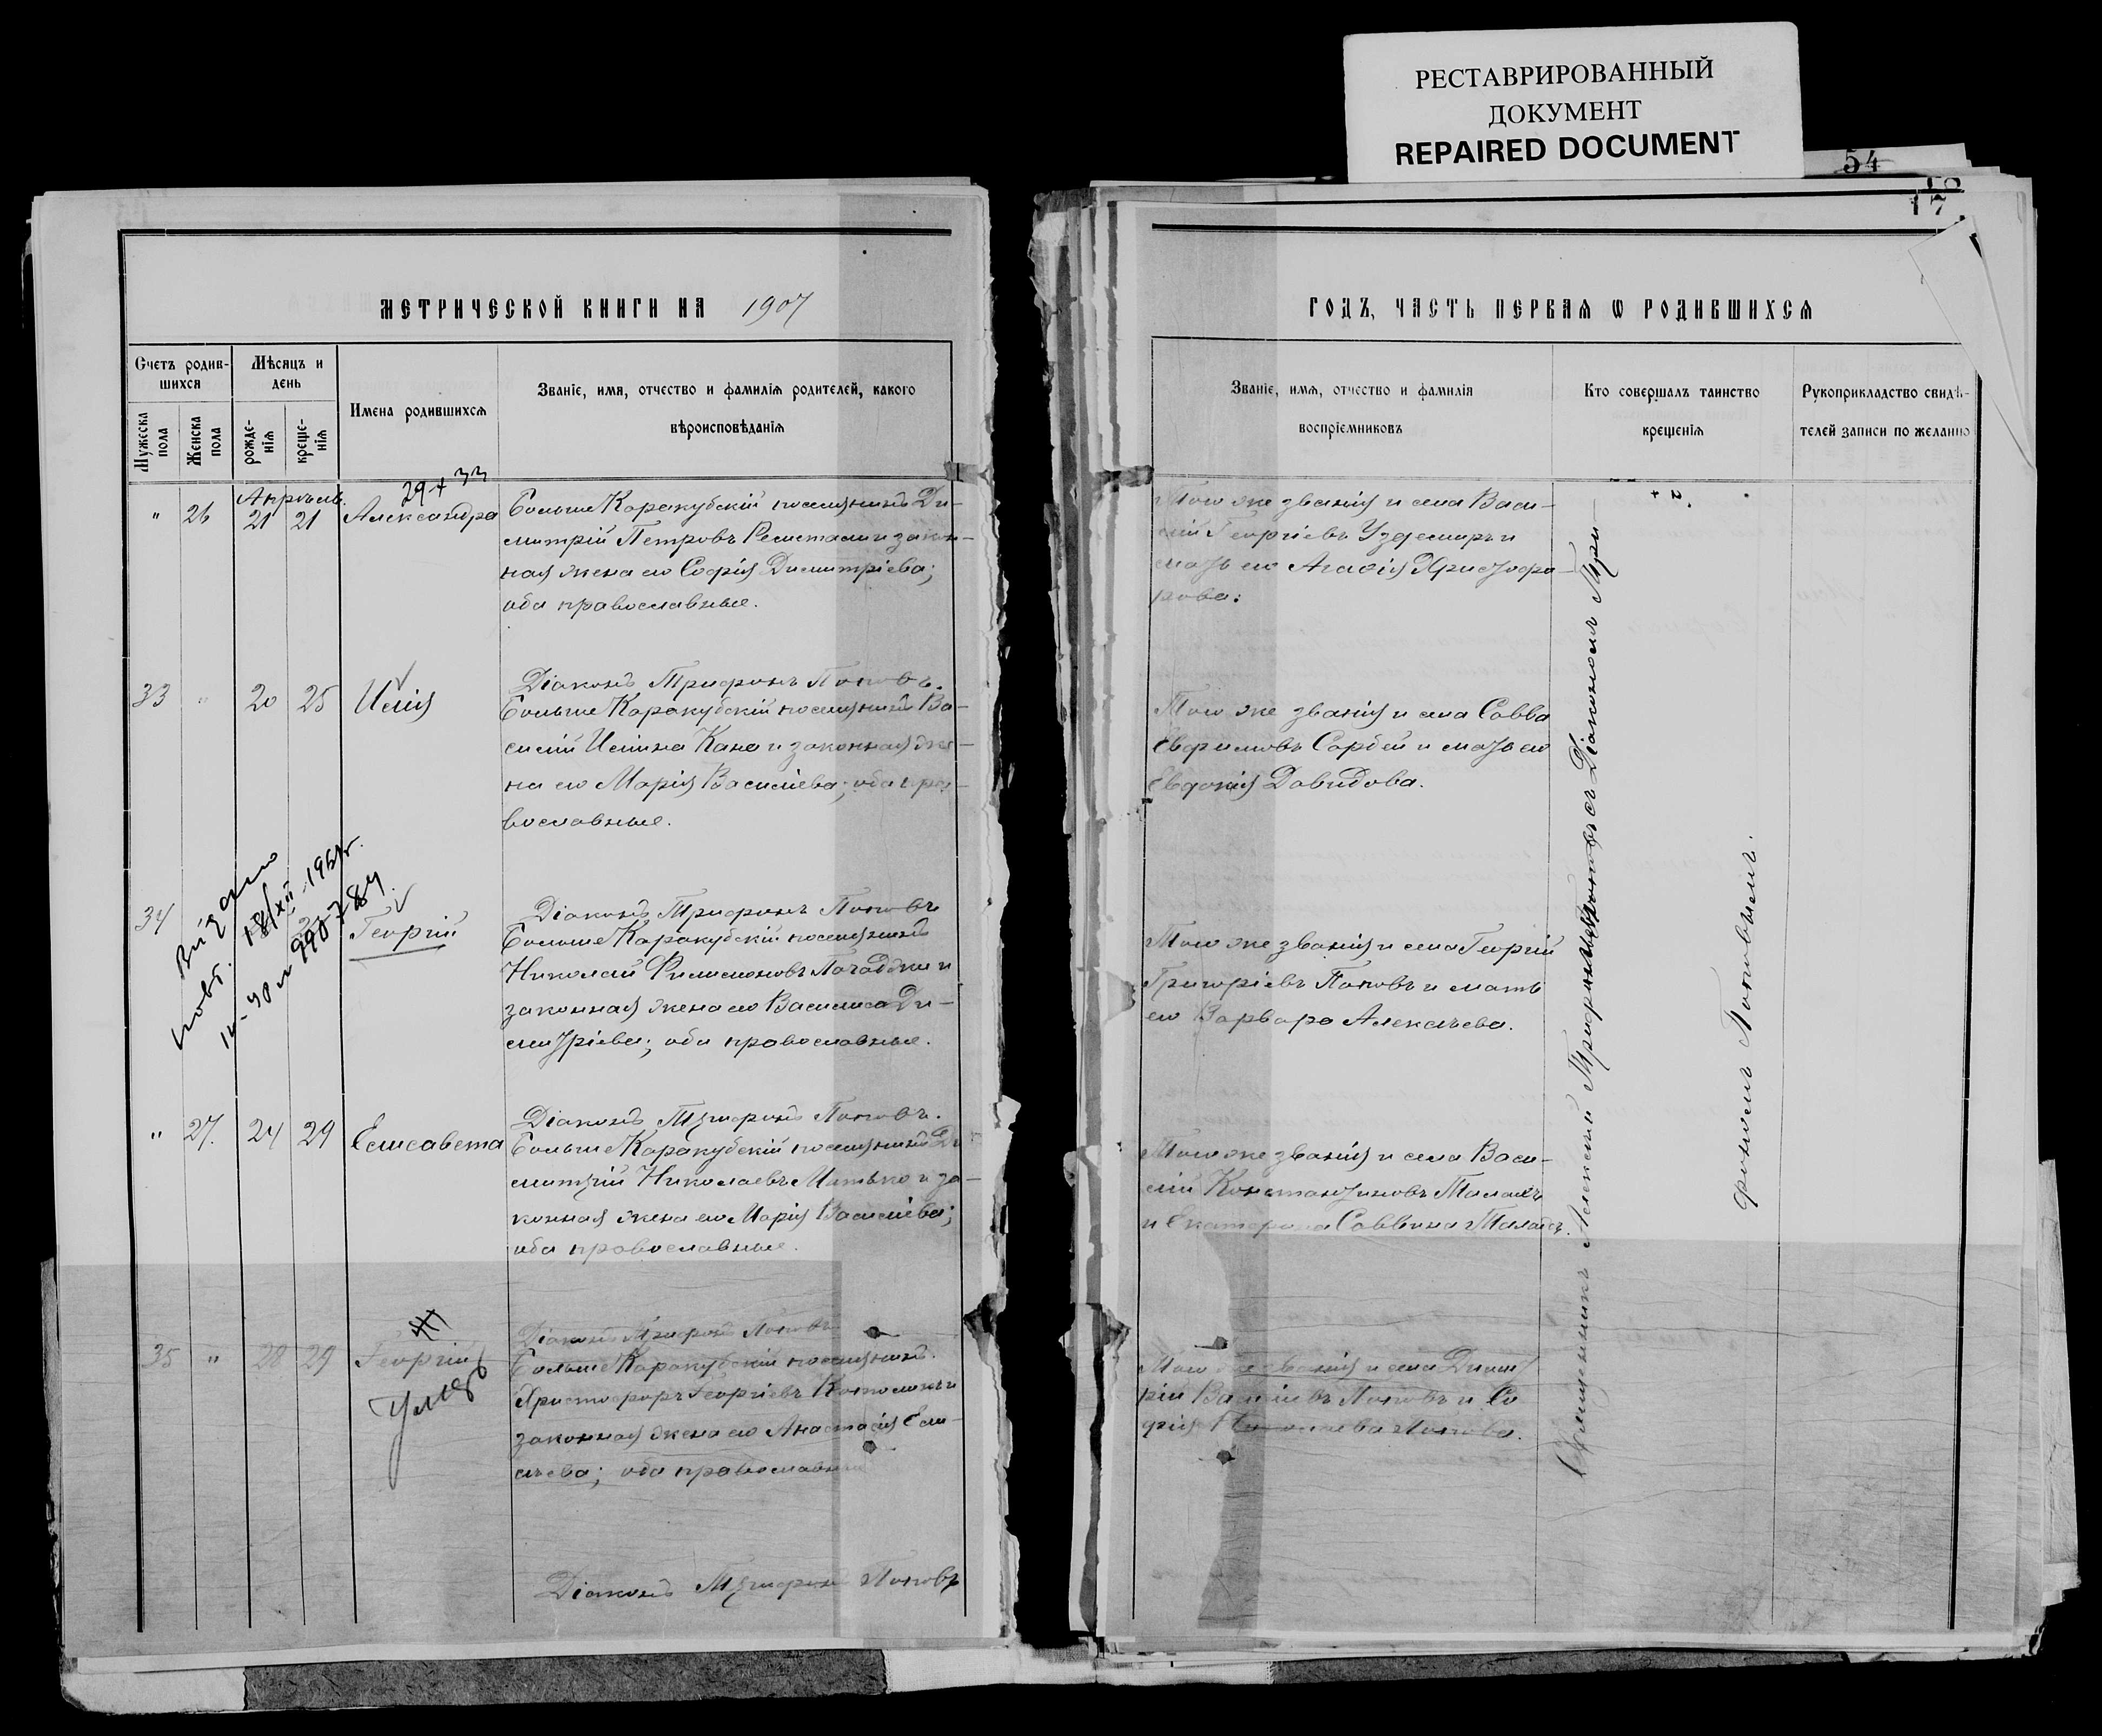 РЕСТАВРИРОВАННЫЙ
ДОКУМЕНТ
REPAIRED DOCUMENT
54
МЕТРИЧЕСКОЙ КНИГИ НА 1907
Счетъ родив-
шихся
Мѣсяцъ и
день
Мужеска
пола
Женска
пола
рожде-
нія
креще-
нія
Имена родившихся
Званіе, имя, отчество и фамилія родителей, какого
вѣроисповѣданія
29 + 33
Апрѣль.
" 26 21 21 Александра
Больше Каракубскій поселянинъ Ди-
митрій Петровъ и закон-
ная жена его Софія Димитріева;
оба православные.
Діаконъ Трифонъ Поповъ.
33 " 20 25 Илія
Больше Каракубскій поселянинъ Ва-
силій Ильинъ Кана и законная же-
на его Марія Васильева; оба пра-
вославные.
Видано
повт. 18/XII
34 Георгій
Діаконъ Трифонъ Поповъ
Больше Каракубскій поселянинъ
Николай Филимоновъ и
законная жена его Василиса Ди-
митріева; оба православные.
Діаконъ Трифонъ Поповъ.
" 27. 24 29 Елисавета
Больше Каракубскій поселянинъ Ди-
митрій Николаевъ Митько и за-
конная жена его Марія Васильева;
оба православные.
Діаконъ Трифонъ Поповъ
35 " 28 29 Георгій
умер
Больше Каракубскій поселянинъ
Христофоръ Георгіевъ и
законная жена его Анастасія
оба православные
Діаконъ Трифонъ Поповъ
17
ГОДЪ, ЧАСТЬ ПЕРВАЯ Ѡ РОДИВШИХСЯ
Званіе, имя, отчество и фамилія
воспріемниковъ
Кто совершалъ таинство
крещенія
Рукоприкладство свидѣ-
телей записи по желанію
Того же званія и села Васи-
лій Георгіевъ Уздемиръ и
мать его Агафія Христофо-
рова.
Того же званія и села Савва
Евфимовъ Сарбей и мать его
Евдокія Давидова.
Того же званія и села Георгій
Григоріевъ Поповъ и мать
его Варвара Алексѣева.
Того же званія и села Васи-
лій Константиновъ Талахъ
и Екатерина Саввина Талахъ.
Того же званія и села Димит
рій Васильевъ Поповъ и Со
фія Попова.
Священникъ Алексій съ Діакономъ Три-
фономъ Поповымъ.